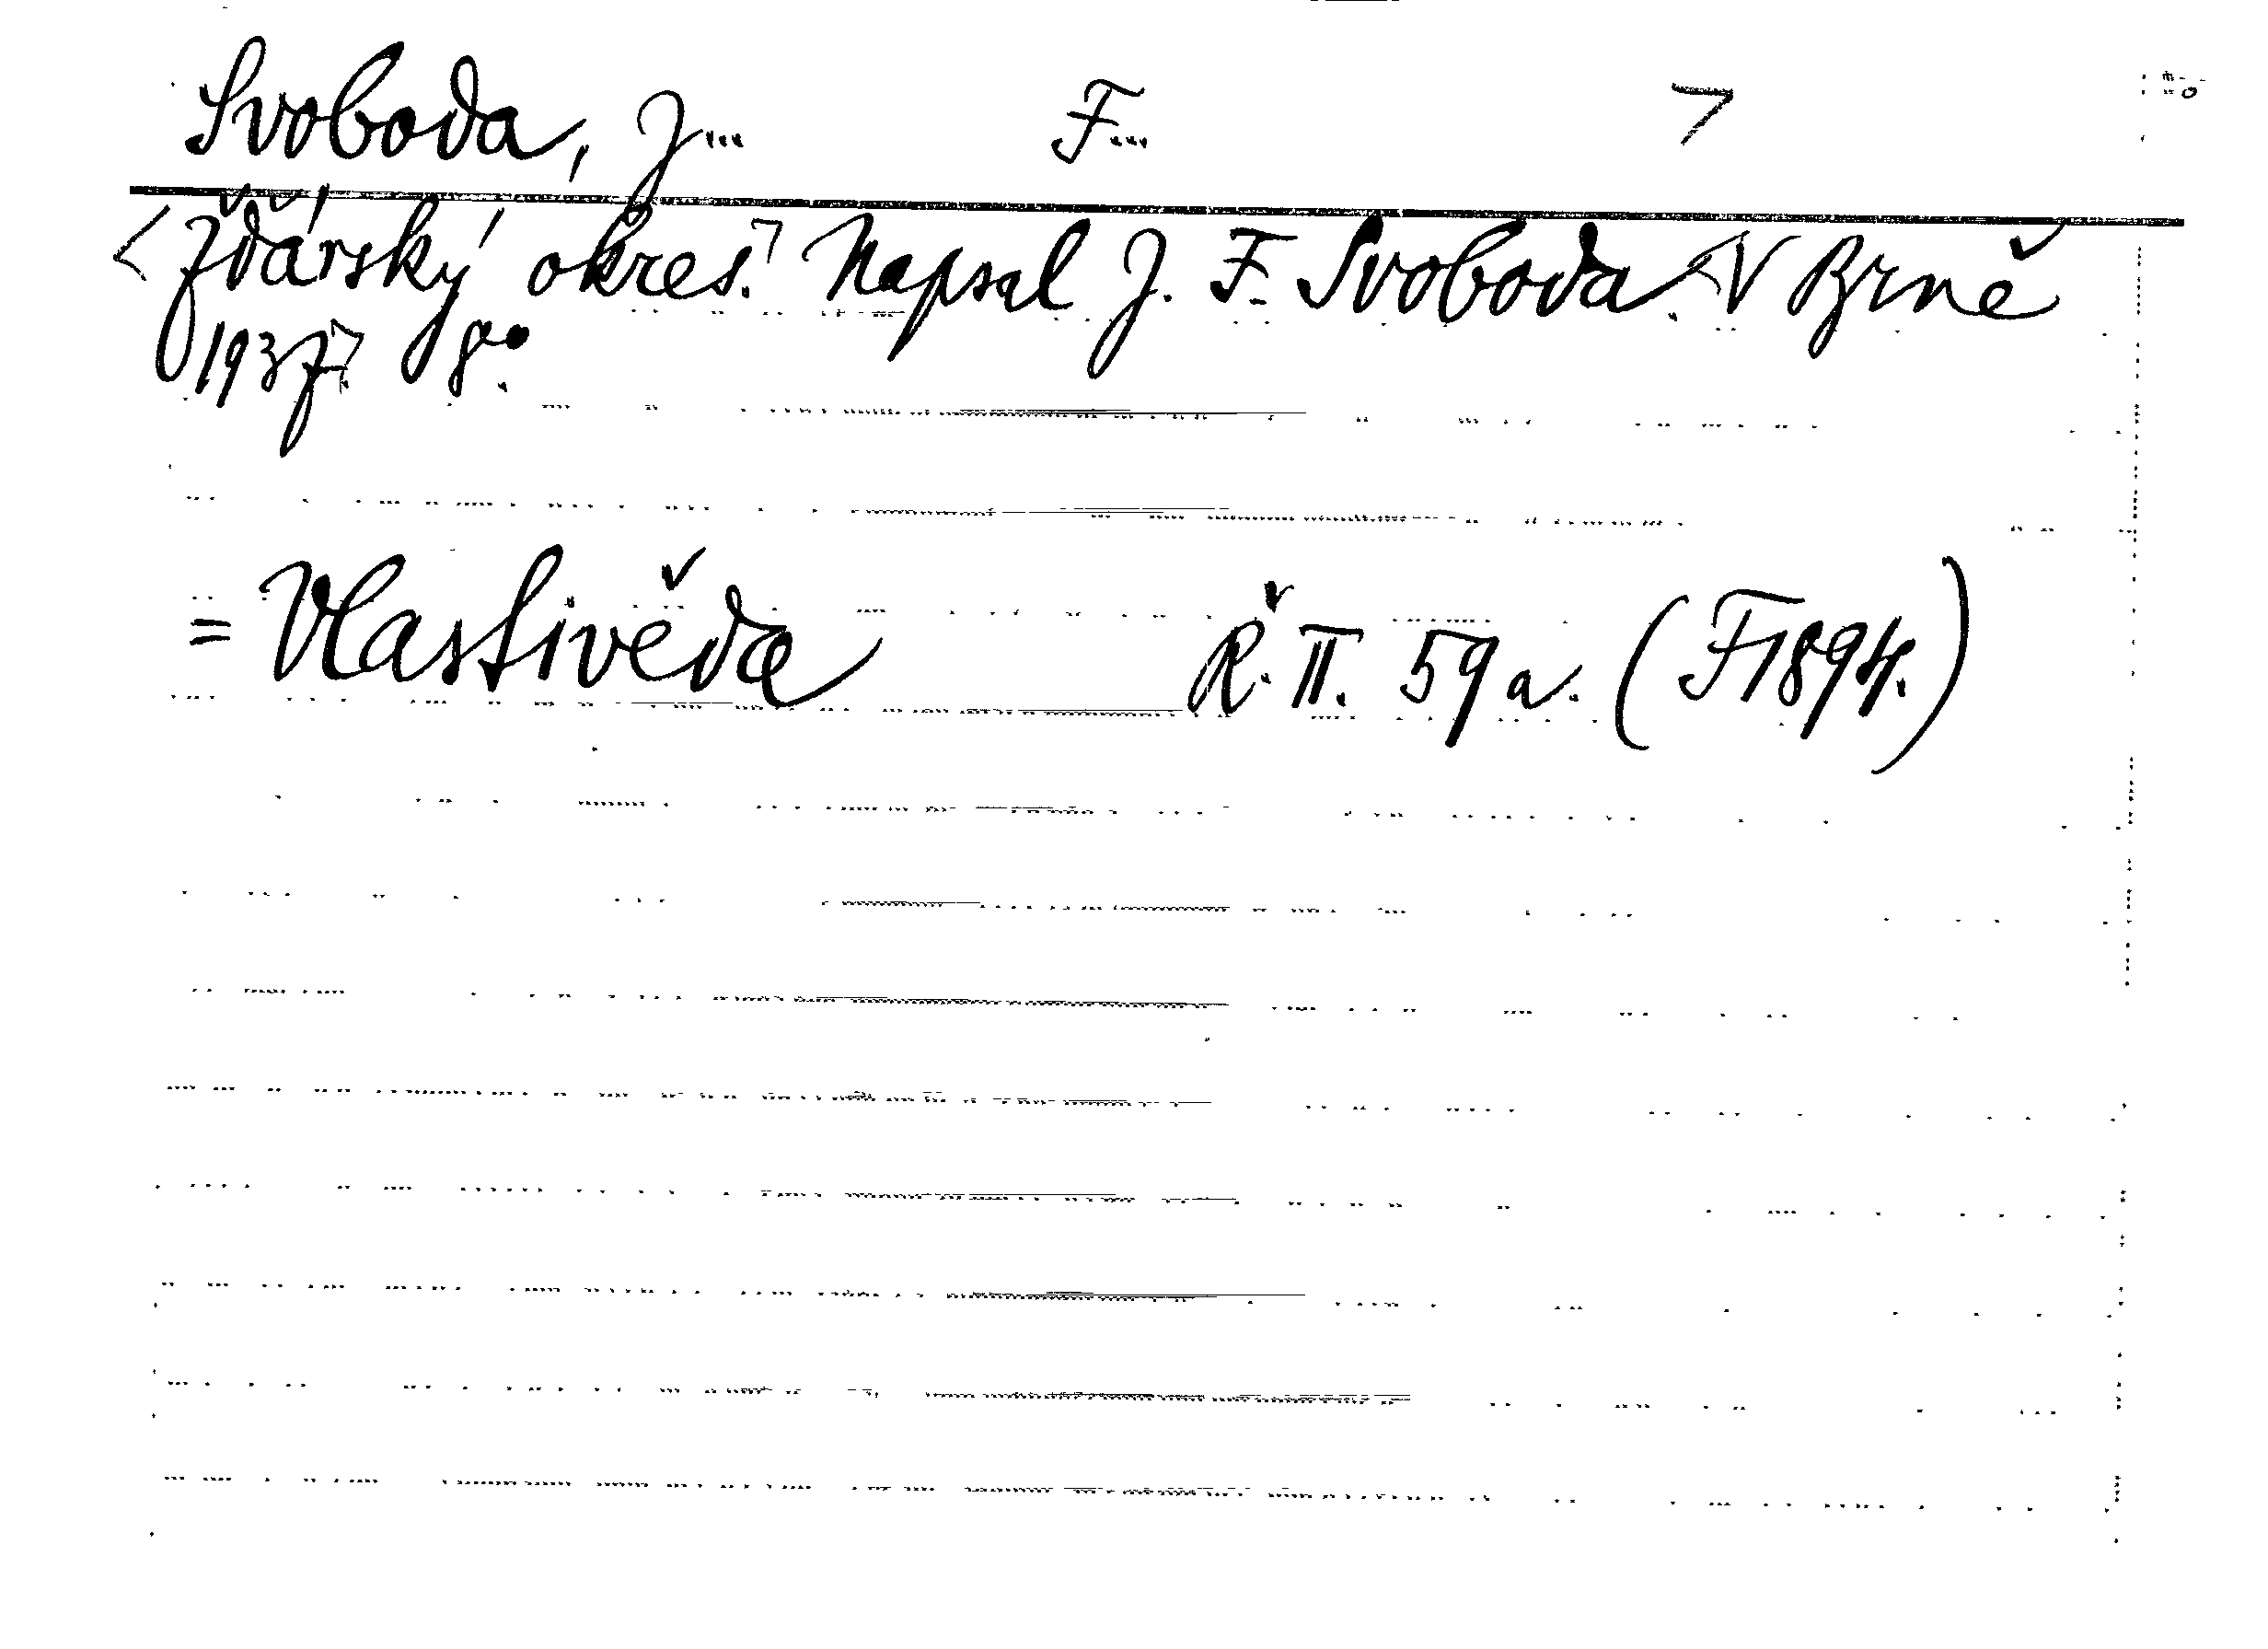 Svoboda, J... F... >
<Žďárský okres.> Napsal J. F. Svoboda. <V Brně
1937.> 8°.
= Vlastivěda Ř. II. 59 a. (F1894.)